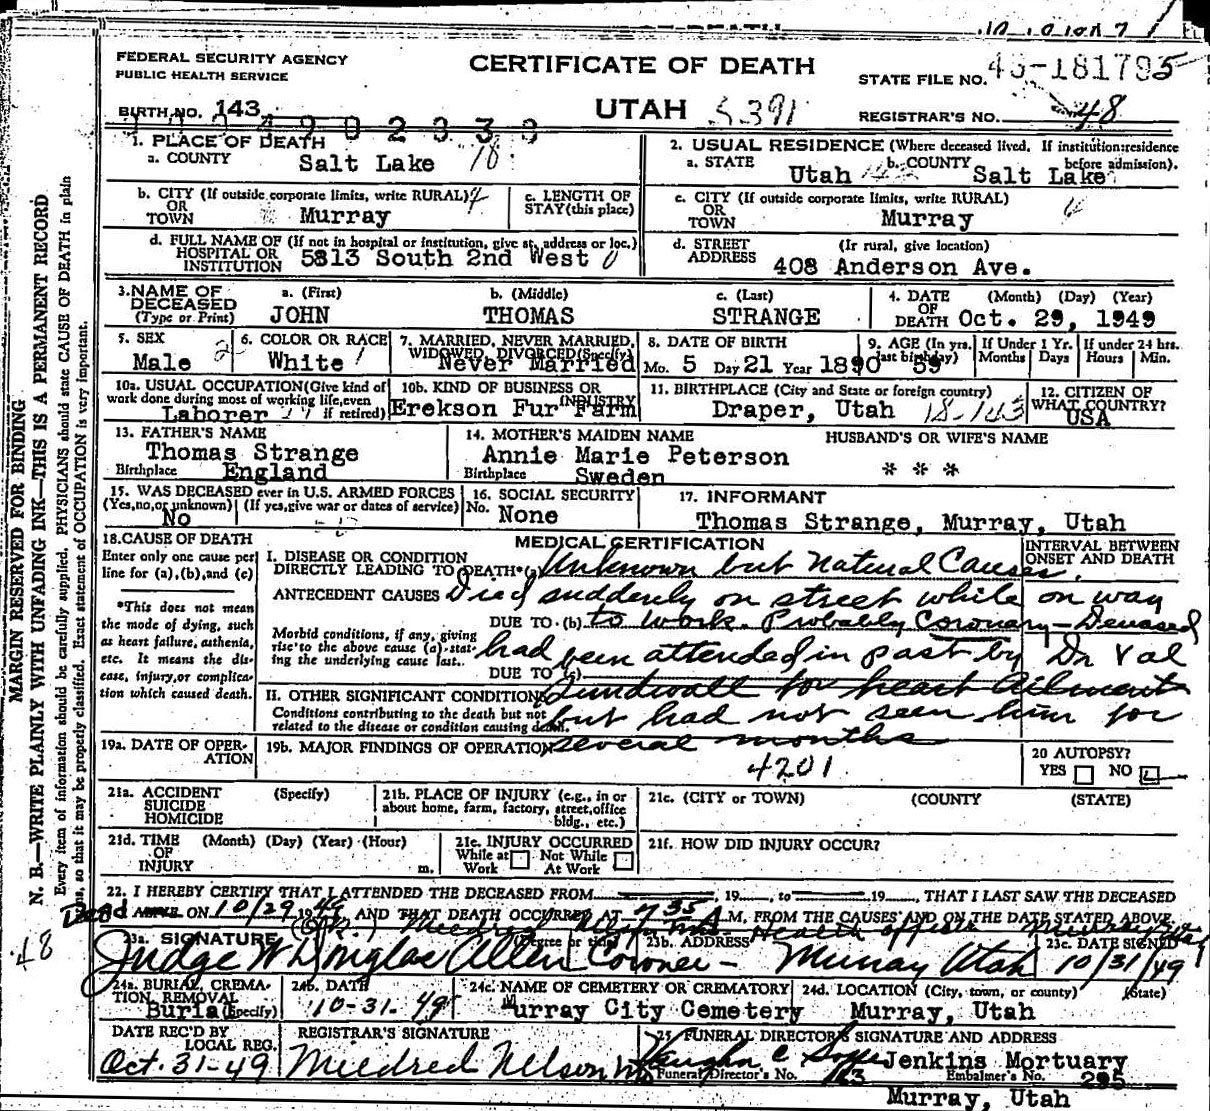 FEDERAL SECURITY AGENCY
PUBLIC HEALTH SERVICE
CERTIFICATE OF DEATH
STATE FILE NO. 49-181795
BIRTH NO. 143
UTAH 5391
REGISTRAR'S NO. 48
1. PLACE OF DEATH
a. COUNTY Salt Lake 18
2. USUAL RESIDENCE (Where deceased lived. If institution: residence before admission).
a. STATE Utah b. COUNTY Salt Lake
b. CITY (If outside corporate limits, write RURAL) OR TOWN Murray
c. LENGTH OF STAY (this place)
c. CITY (If outside corporate limits, write RURAL) OR TOWN Murray
d. FULL NAME OF (If not in hospital or institution, give st. address or loc.) HOSPITAL OR INSTITUTION 5813 South 2nd West
d. STREET ADDRESS (If rural, give location) 408 Anderson Ave.
3. NAME OF DECEASED (Type or Print)
a. (First) JOHN
b. (Middle) THOMAS
c. (Last) STRANGE
4. DATE OF DEATH (Month) (Day) (Year) Oct. 29, 1949
5. SEX Male 2
6. COLOR OR RACE White 1
7. MARRIED, NEVER MARRIED, WIDOWED, DIVORCED (Specify) Never Married
8. DATE OF BIRTH Mo. 5 Day 21 Year 1890
9. AGE (In yrs. last birthday) 59
If Under 1 Yr. Months Days
If under 24 hrs. Hours Min.
10a. USUAL OCCUPATION (Give kind of work done during most of working life, even if retired) Laborer
10b. KIND OF BUSINESS OR INDUSTRY Erekson Fur Farm
11. BIRTHPLACE (City and State or foreign country) Draper, Utah 18-143
12. CITIZEN OF WHAT COUNTRY? USA
13. FATHER'S NAME Thomas Strange
Birthplace England
14. MOTHER'S MAIDEN NAME Annie Marie Peterson
Birthplace Sweden
HUSBAND'S OR WIFE'S NAME
* * *
15. WAS DECEASED ever in U.S. ARMED FORCES
(Yes, no, or unknown) (If yes, give war or dates of service)
No
16. SOCIAL SECURITY No. None
17. INFORMANT
Thomas Strange, Murray, Utah
18. CAUSE OF DEATH
Enter only one cause per line for (a), (b), and (c)
*This does not mean the mode of dying, such as heart failure, asthenia, etc. It means the disease, injury, or complication which caused death.
MEDICAL CERTIFICATION
INTERVAL BETWEEN ONSET AND DEATH
I. DISEASE OR CONDITION DIRECTLY LEADING TO DEATH* (a) Unknown but Natural Causes.
ANTECEDENT CAUSES Died suddenly on street while on way
DUE TO (b) to work. Probably Coronary - Deceased
Morbid conditions, if any, giving rise to the above cause (a) stating the underlying cause last.
had been attended in past by Dr Val
DUE TO (c) Sundwall for heart ailment
II. OTHER SIGNIFICANT CONDITIONS
Conditions contributing to the death but not related to the disease or condition causing death.
but had not seen him for
several months
19a. DATE OF OPERATION
19b. MAJOR FINDINGS OF OPERATION
4201
20 AUTOPSY?
YES NO
21a. ACCIDENT SUICIDE HOMICIDE (Specify)
21b. PLACE OF INJURY (e.g., in or about home, farm, factory, street, office bldg., etc.)
21c. (CITY or TOWN) (COUNTY) (STATE)
21d. TIME OF INJURY (Month) (Day) (Year) (Hour) m.
21e. INJURY OCCURRED
While at Work Not While At Work
21f. HOW DID INJURY OCCUR?
22. I HEREBY CERTIFY THAT I ATTENDED THE DECEASED FROM 19 , to 19 , THAT I LAST SAW THE DECEASED
Dead ALIVE ON 10/29 1949 AND THAT DEATH OCCURRED AT 7 35 A M, FROM THE CAUSES AND ON THE DATE STATED ABOVE.
(O.K.) Mildred Nelson MD. Health officer Murray Utah
23a. SIGNATURE (Degree or title) Judge W Douglas Allen Coroner -
23b. ADDRESS Murray Utah
23c. DATE SIGNED 10/31/49
24a. BURIAL, CREMATION, REMOVAL (Specify) Burial
24b. DATE 10-31-49
24c. NAME OF CEMETERY OR CREMATORY Murray City Cemetery
24d. LOCATION (City, town, or county) (State) Murray, Utah
DATE REC'D BY LOCAL REG. Oct. 31-49
REGISTRAR'S SIGNATURE Mildred Nelson
25. FUNERAL DIRECTOR'S SIGNATURE AND ADDRESS
Vaughn C Jenkins Mortuary
Funeral Director's No. 163 Embalmer's No. 295
Murray, Utah
MARGIN RESERVED FOR BINDING
N. B.—WRITE PLAINLY WITH UNFADING INK—THIS IS A PERMANENT RECORD
Every item of information should be carefully supplied. PHYSICIANS should state CAUSE OF DEATH in plain
terms, so that it may be properly classified. Exact statement of OCCUPATION is very important.
48